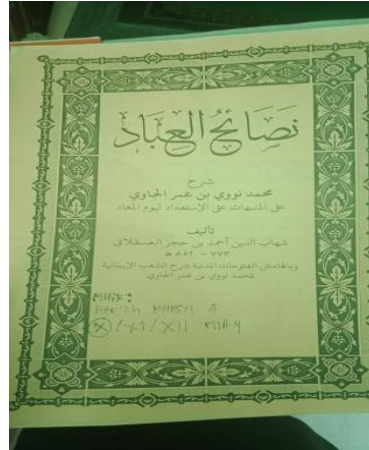 نَصَائِحُ العِبَاد
شرح
محمد نووي بن عمر الجاوي
على المنبهات على الاستعداد ليوم المعاد
تأليف
شهاب الدين أحمد بن حجر العسقلاني
٧٧٣ - ٨٥٢ هـ
وبالهامش الفتوحات المدنية شرح الشعب الإيمانية
لمحمد نووي بن عمر الجاوي
Milik:
A
X / XI / XII MIA 4